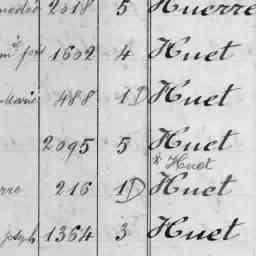 2018 5 Huerre
1602 4 Huet
Marie 488 1D Huet
2095 5 Huet
* Huet
216 1D Huet
Joseph 1364 3 Huet